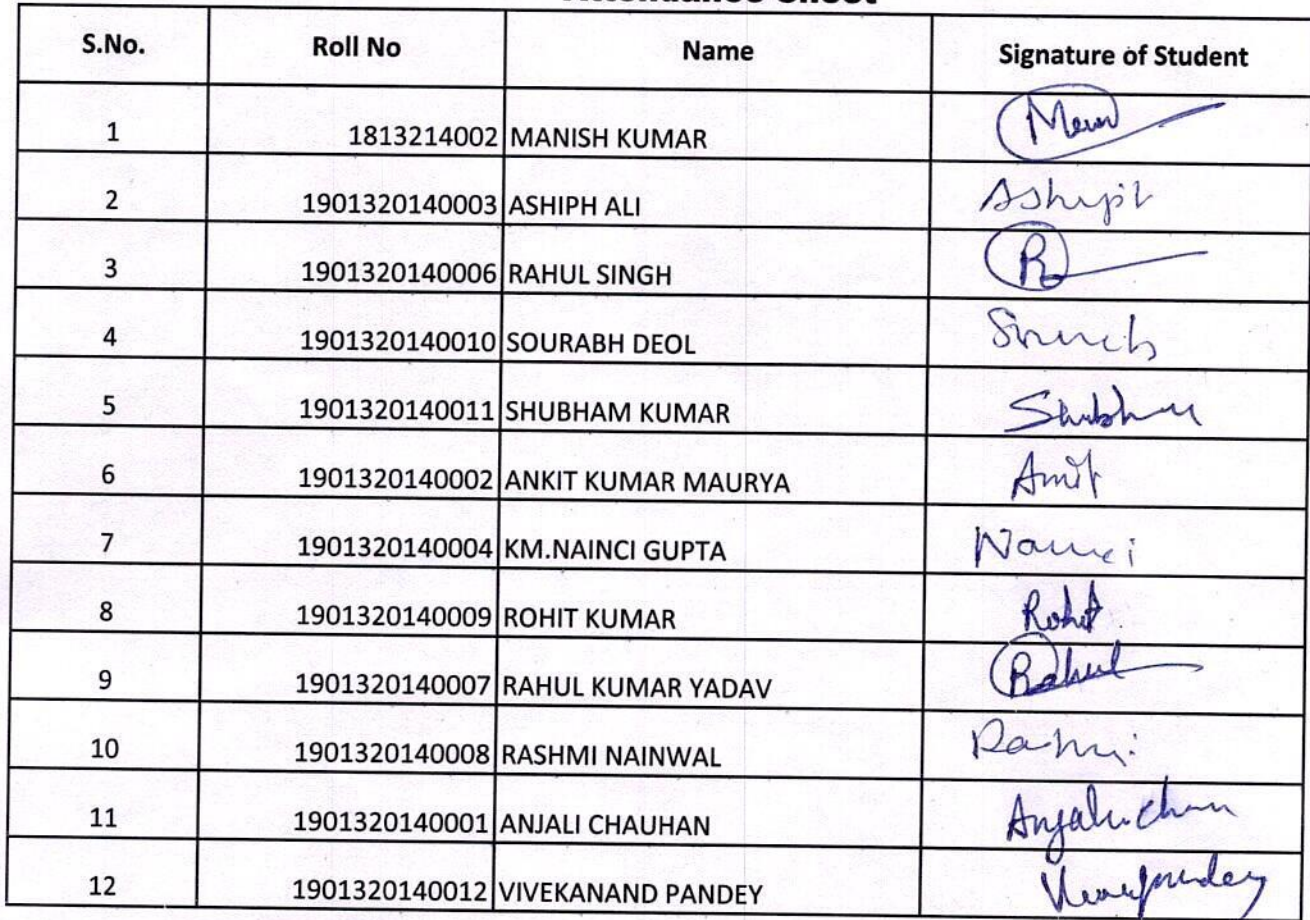 Attendance Sheet
S.No. Roll No Name Signature of Student
1 1813214002 MANISH KUMAR
2 1901320140003 ASHIPH ALI Ashiph
3 1901320140006 RAHUL SINGH R
4 1901320140010 SOURABH DEOL
5 1901320140011 SHUBHAM KUMAR Shubham
6 1901320140002 ANKIT KUMAR MAURYA
7 1901320140004 KM.NAINCI GUPTA
8 1901320140009 ROHIT KUMAR Rohit
9 1901320140007 RAHUL KUMAR YADAV Rahul
10 1901320140008 RASHMI NAINWAL
11 1901320140001 ANJALI CHAUHAN
12 1901320140012 VIVEKANAND PANDEY